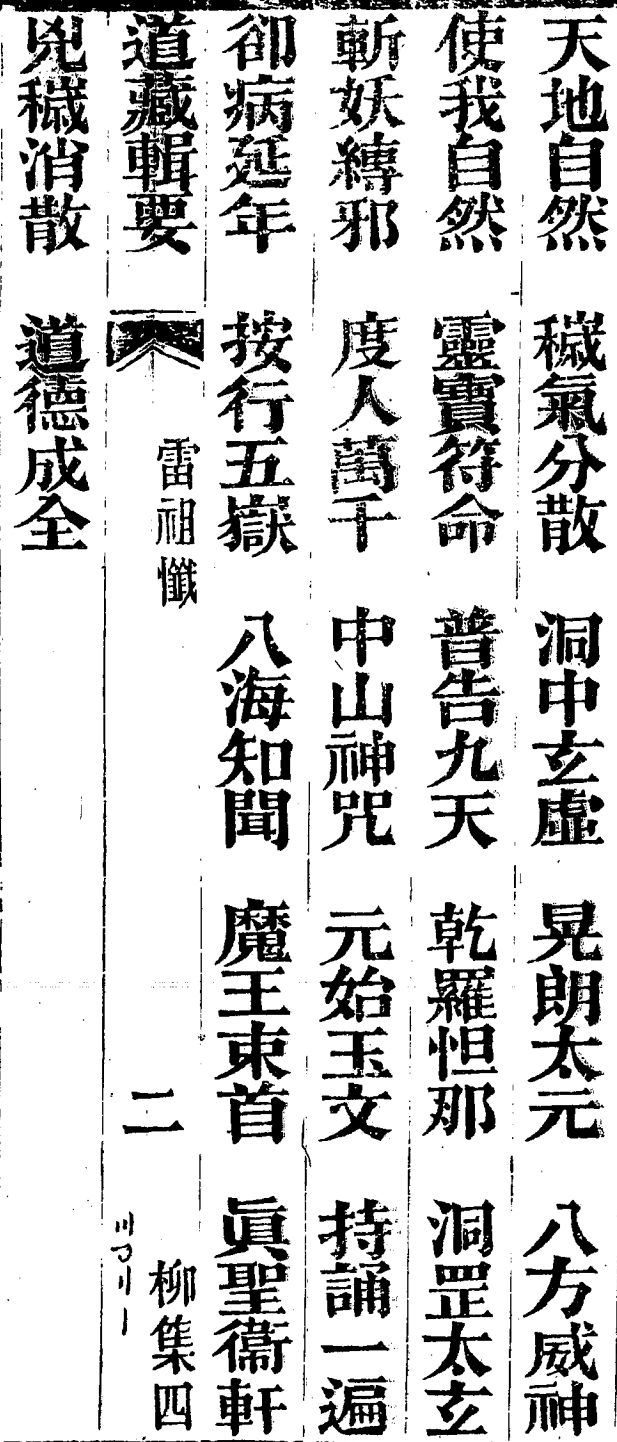 天地自然 穢氣分散 洞中玄虛 晃朗太元 八方威神
使我自然 靈寶符命 普告九天 乾羅怛那 洞罡太玄
斬妖縛邪 度人萬千 中山神咒 元始玉文 持誦一遍
卻病延年 按行五嶽 八海知聞 魔王束首 眞聖衞軒
道藏輯要 雷祖懺 二 柳集四
兇穢消散 道德成全